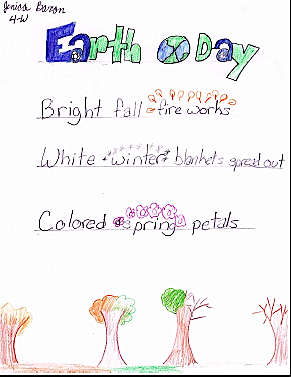 Jenica Baron
4-W
Earth Day
Bright fall fire works
White winter blankets spread out
Colored spring petals